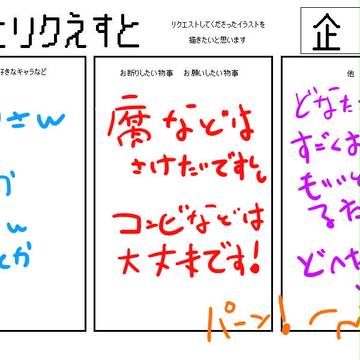 とりくえすと
リクエストしてくださったイラストを
描きたいと思います
企
好きなキャラなど
さん
か
とか
お断りしたい物事 お願いしたい物事
腐などは
さけたいですし
コンビなどは
大丈夫です!
パーン!
他
どなた
すごくお
もいい
るた
どへた